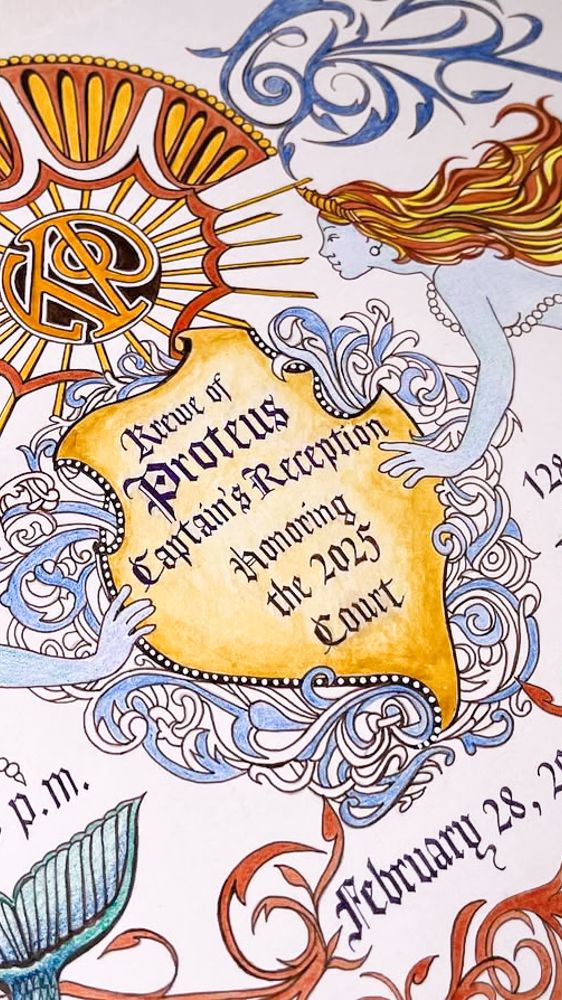 KP
Krewe of
Proteus
Captain's Reception
Honoring
the 2025
Court
128
p.m.
February 28, 20